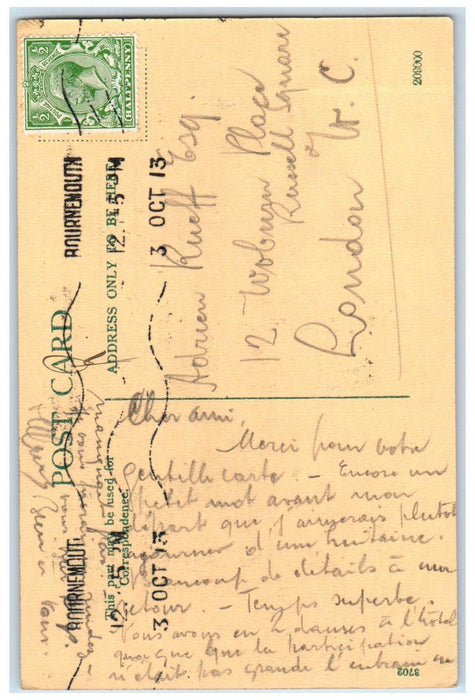 ½ HALFPENNY ½
BOURNEMOUTH
12.15 PM
3 OCT 13
209000
POST CARD
ADDRESS ONLY TO BE HERE
Adrien Rueff Esq
12 Woburn Place
Russell Square
London W.C.
This part may be used for
Correspondence.
BOURNEMOUT
12.15 PM
3 OCT 13
Cher ami,
Merci pour votre
gentille carte - Encore un
petit mot avant mon
départ que j'ajournerais plutôt
d'une huitaine.
Beaucoup de détails à mon
retour. - Temps superbe.
Nous avons eu 2 danses à l'hôtel
quoique que la participation
n'était pas grande l'entrain ne
manqua
3702